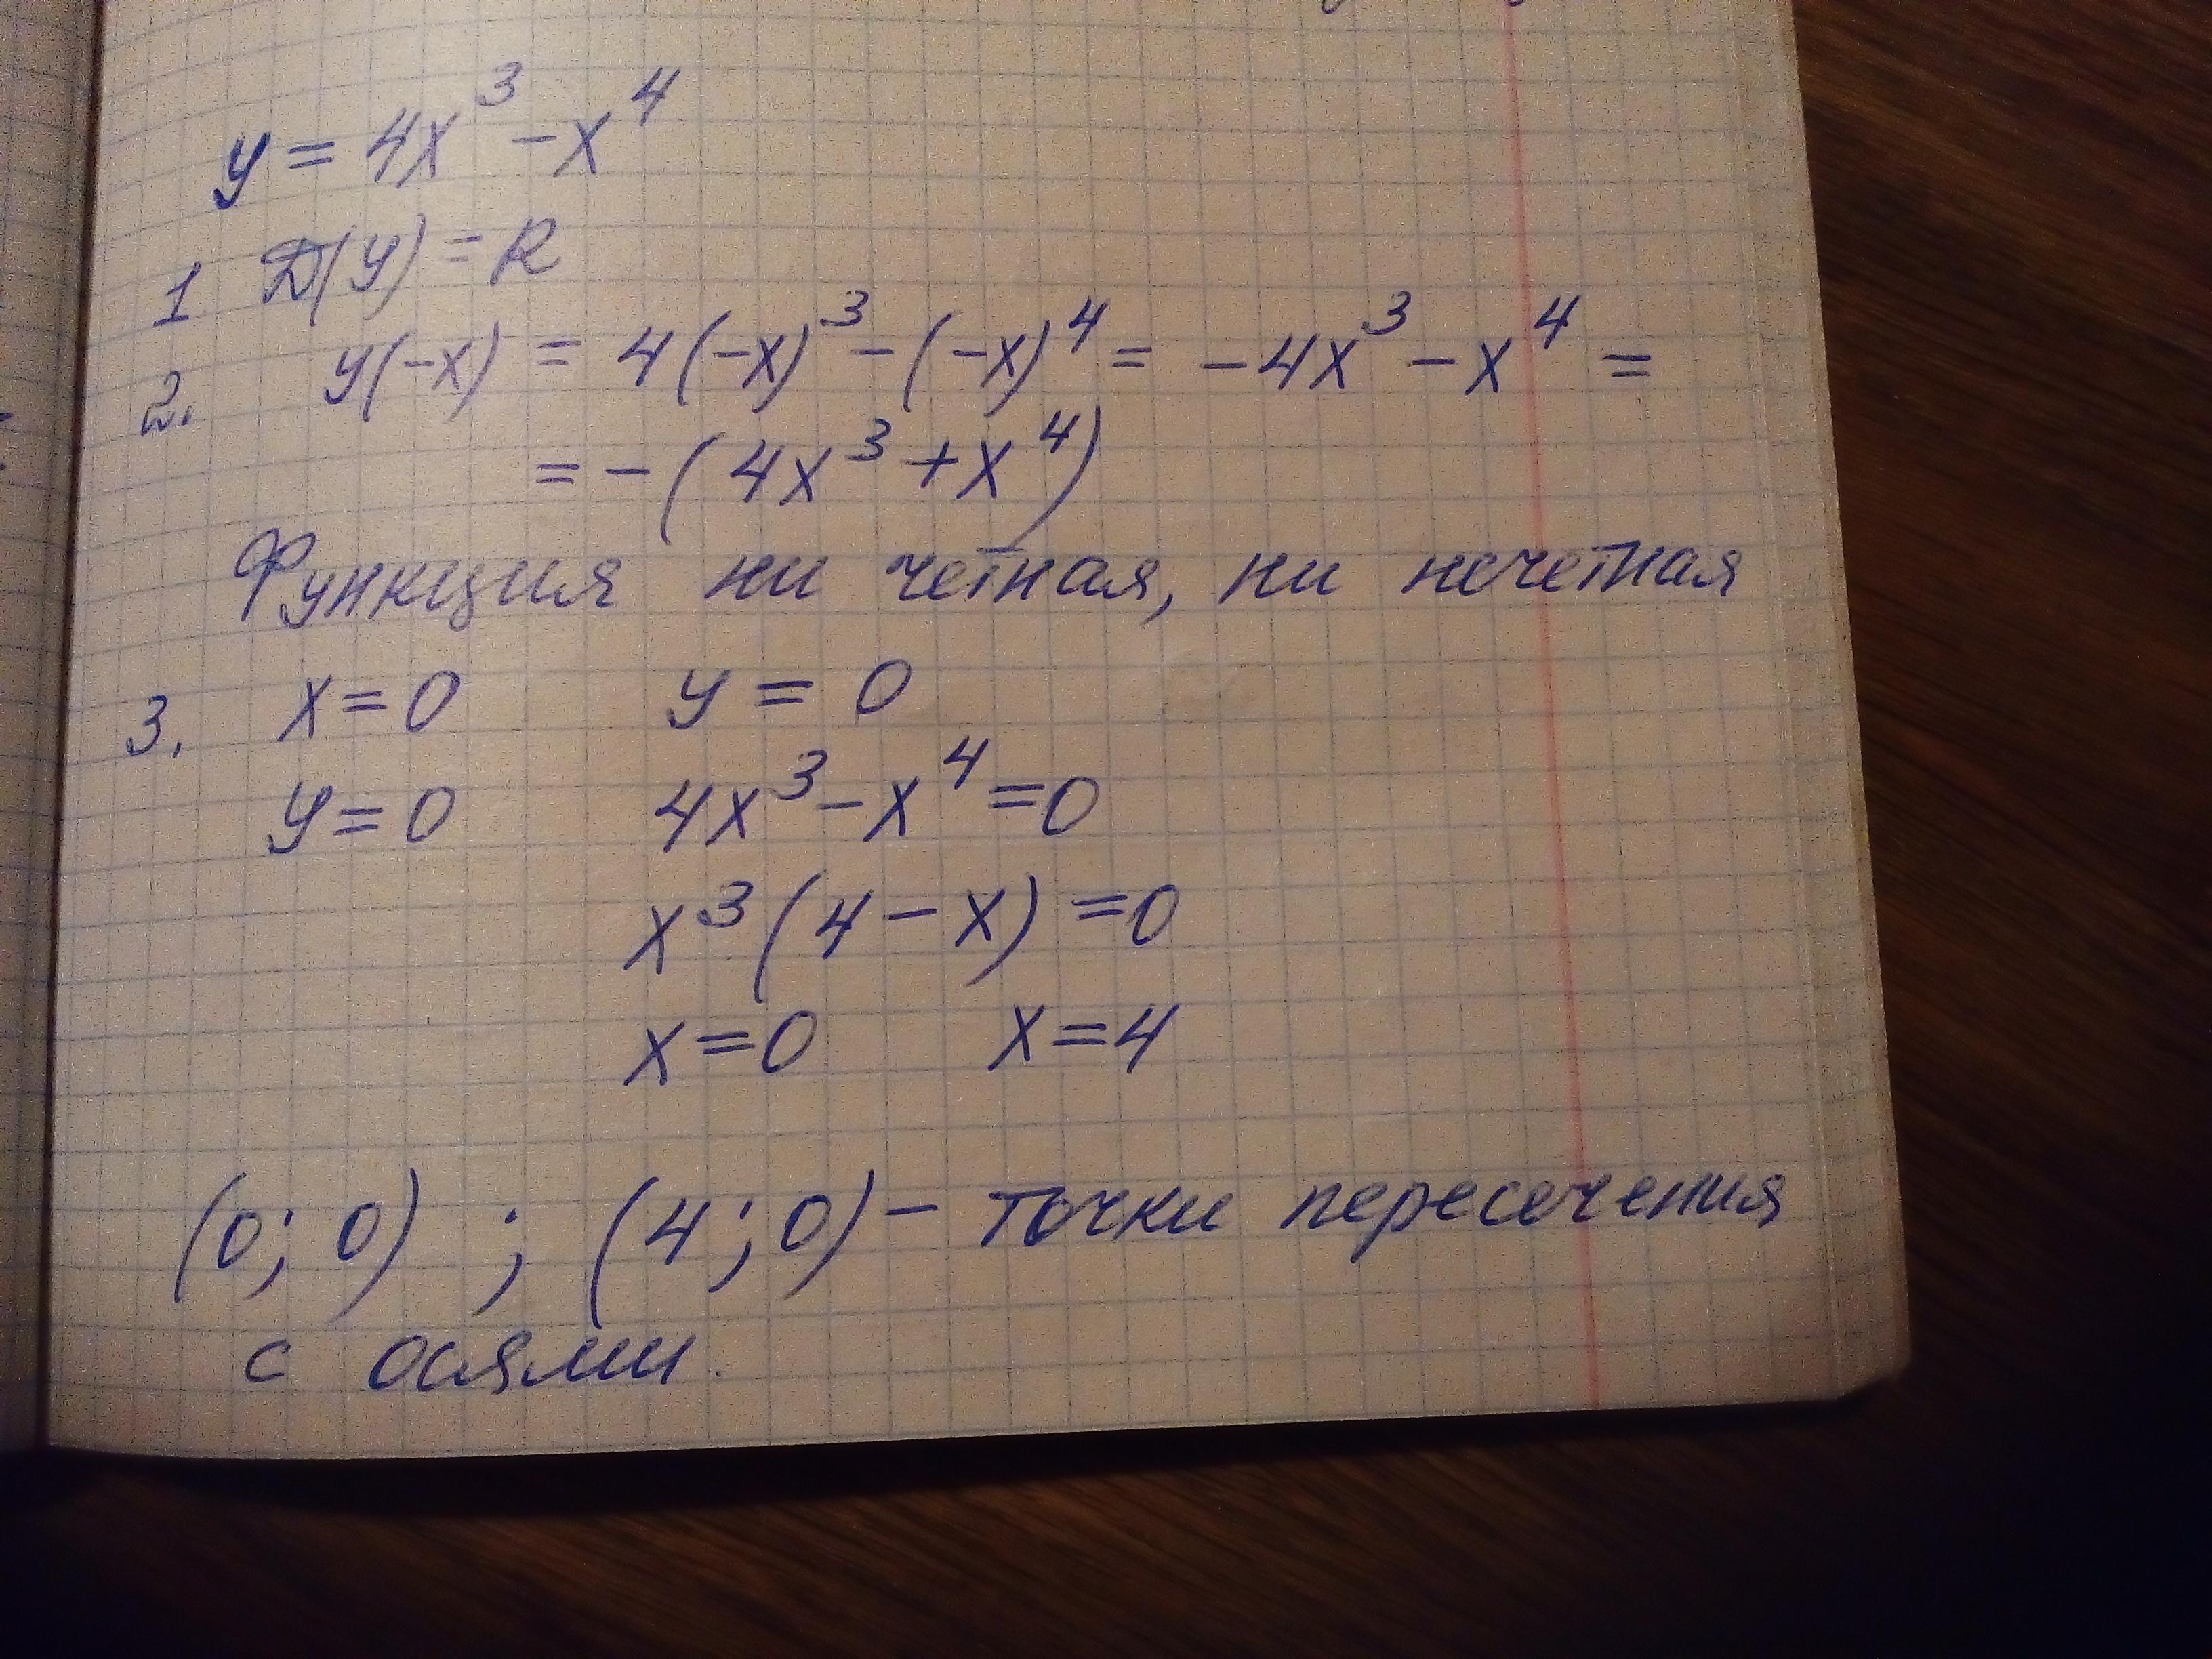 y = 4x³ - x⁴
1 D(y) = R
2. y(-x) = 4(-x)³ - (-x)⁴ = -4x³ - x⁴ =
= -(4x³ + x⁴)
Функция ни четная, ни нечетная
3. x = 0 y = 0
y = 0 4x³ - x⁴ = 0
x³(4 - x) = 0
x = 0 x = 4
(0; 0) ; (4; 0) - точки пересечения
с осями.